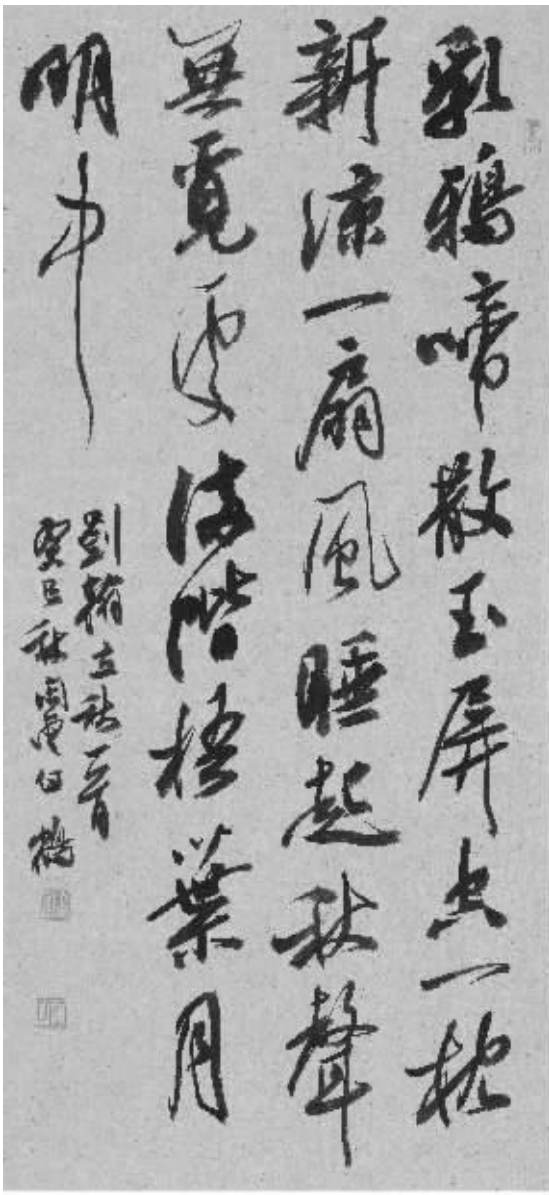 乳鴉啼散玉屏空一枕
新涼一扇風睡起秋聲
無覓處滿階梧葉月
明中
劉翰立秋一首
癸巳秋鶴